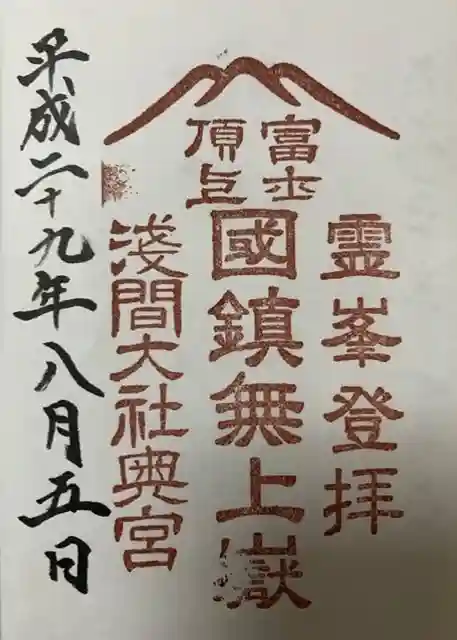 富士
頂上
霊峯登拝
國鎮無上嶽
淺間大社奥宮
平成二十九年八月五日